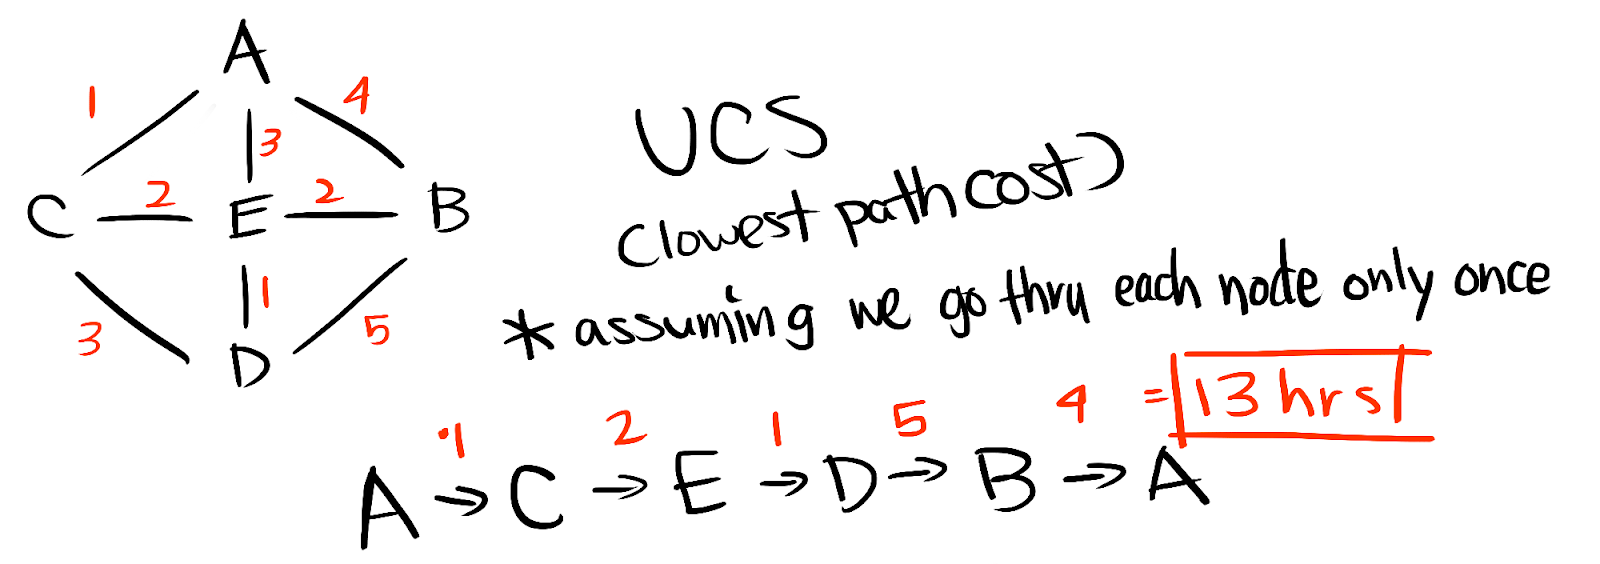 A
1
4
3
C
2
E
2
B
1
3
5
D
UCS
(lowest path cost)
* assuming we go thru each node only once
1 2 1 5 4 = 13 hrs
A → C → E → D → B → A